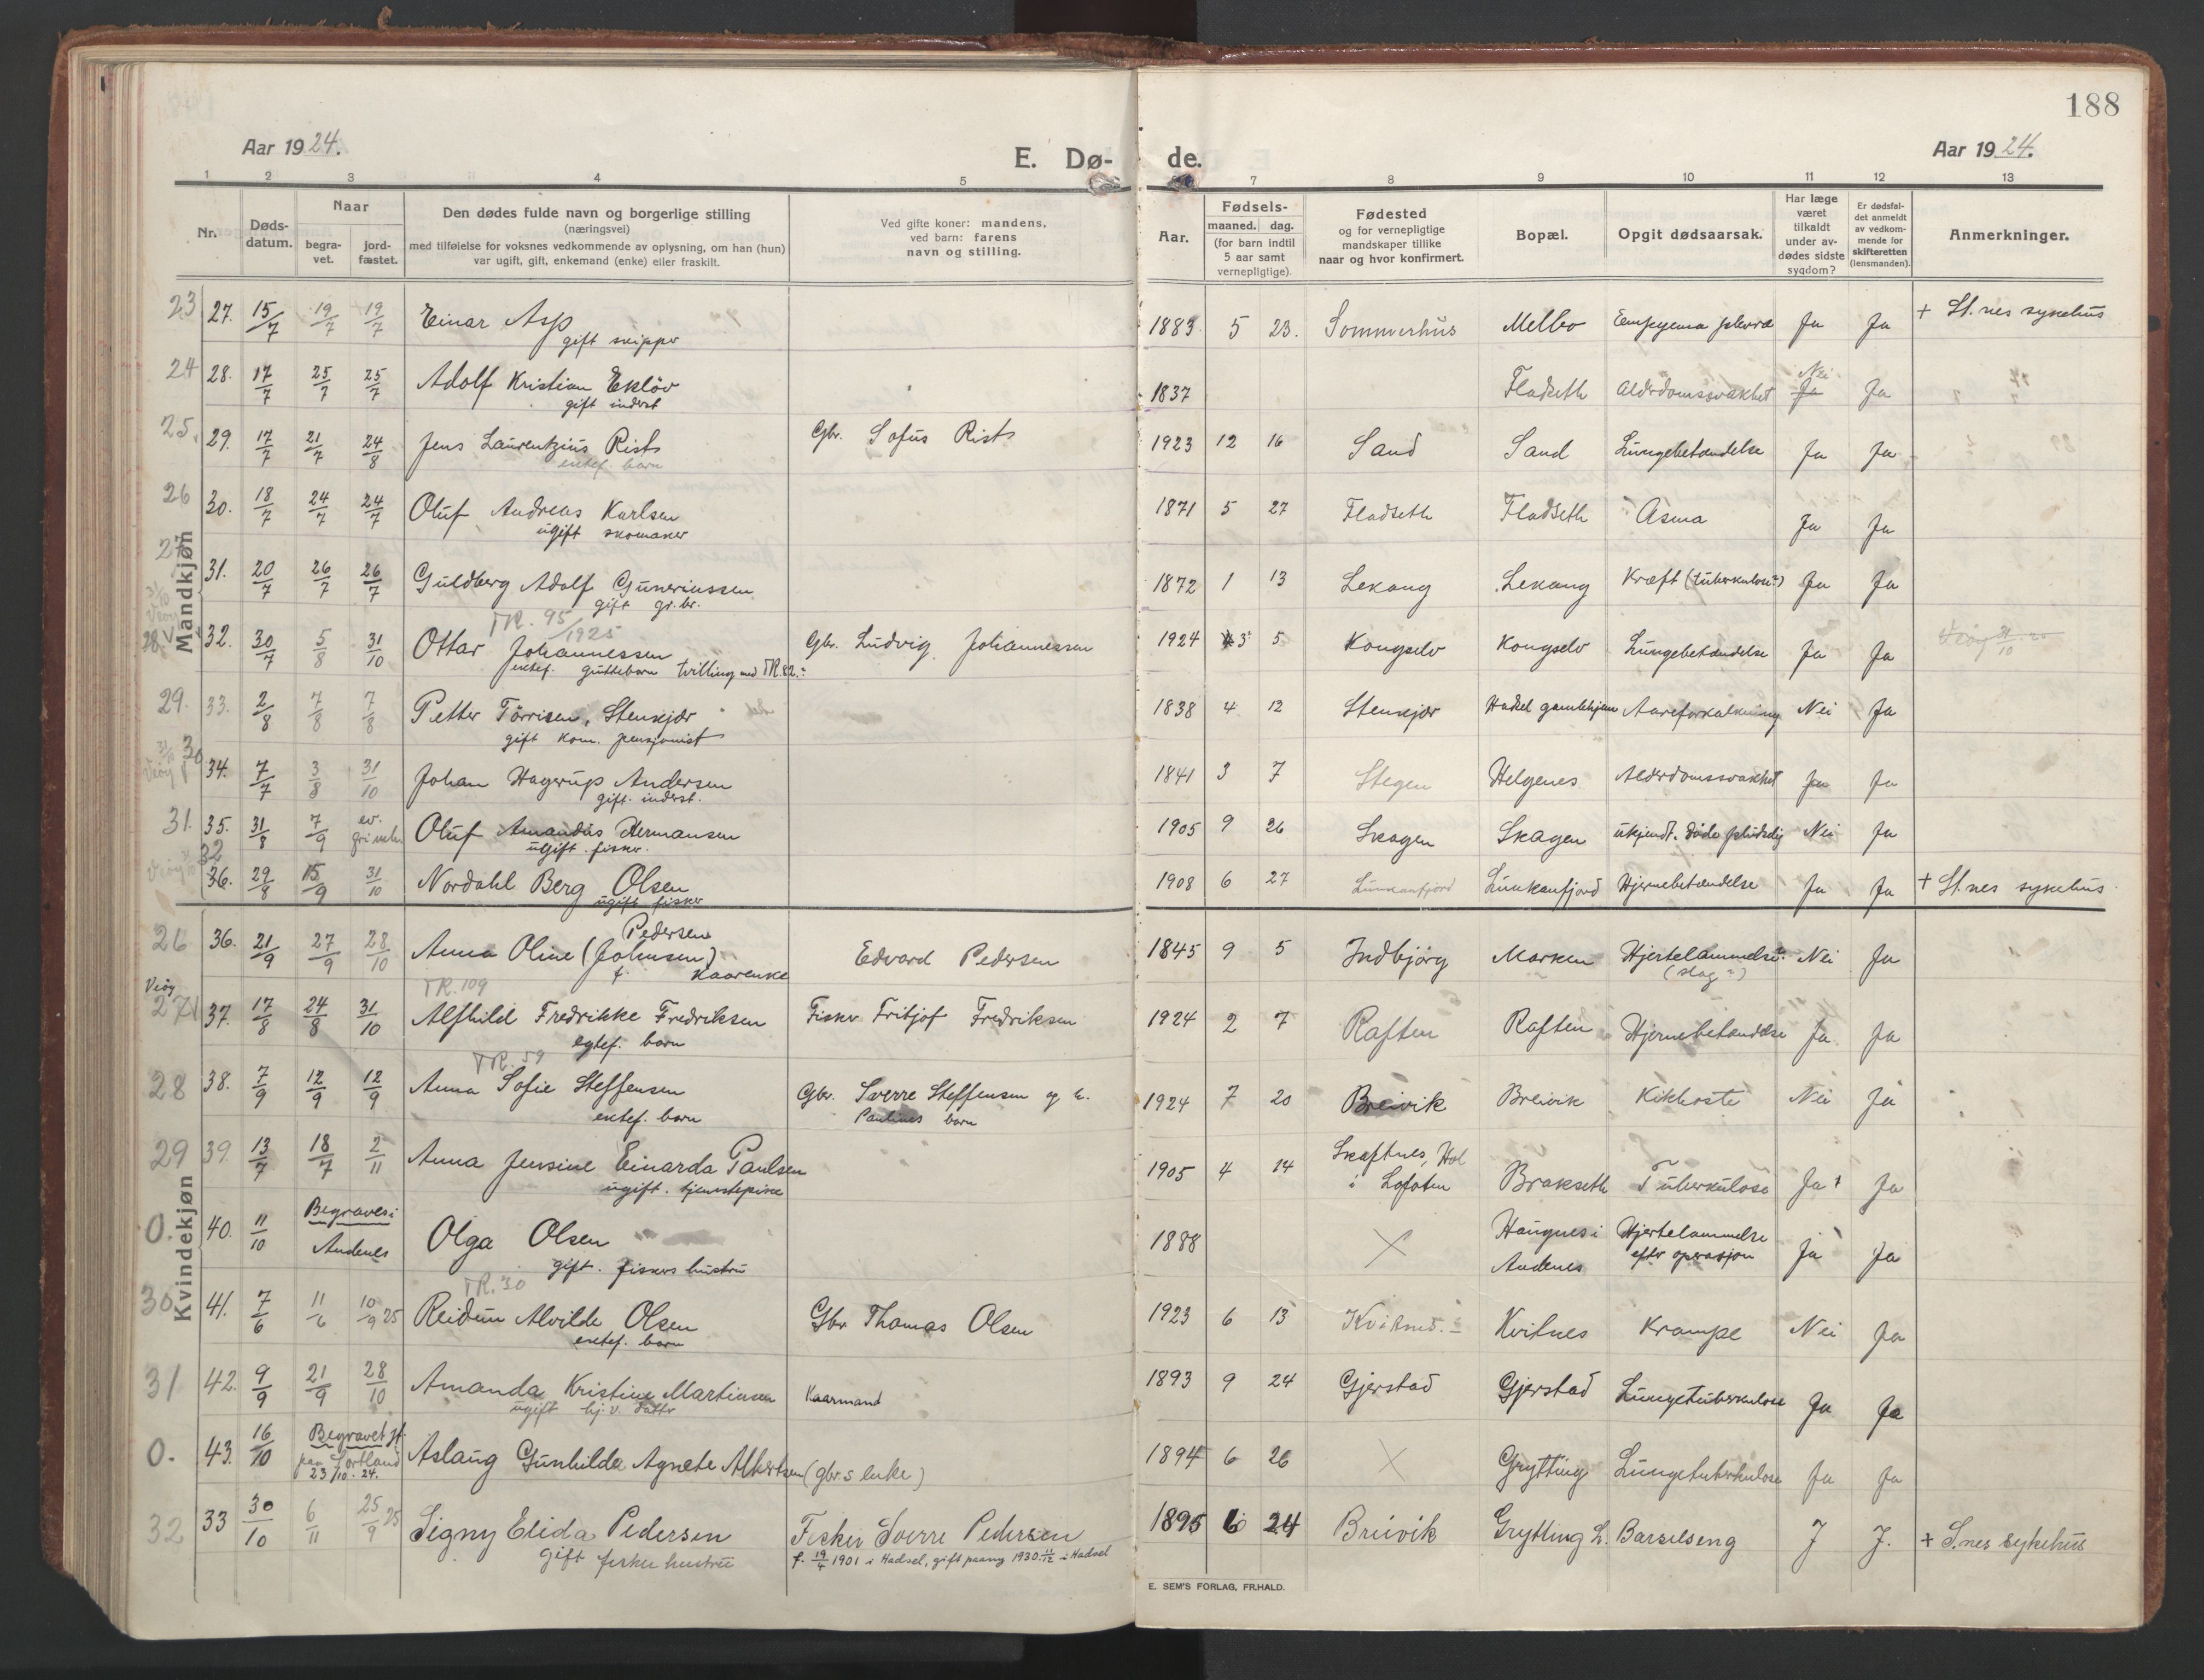 188
Aar 1924.
E. Dø-de.
Aar 1924.
1 2 3 4 5 7 8 9 10 11 12 13
Nr.
Døds-datum.
Naar
begra-vet.
jord-fæstet.
Den dødes fulde navn og borgerlige stilling
(næringsvei)
med tilføielse for voksnes vedkommende av oplysning, om han (hun)
var ugift, gift, enkemand (enke) eller fraskilt.
Ved gifte koner: mandens,
ved barn: farens
navn og stilling.
Aar.
Fødsels-
maaned. dag.
(for barn indtil
5 aar samt
vernepligtige).
Fødested
og for vernepligtige
mandskaper tillike
naar og hvor konfirmert.
Bopæl.
Opgit dødsaarsak.
Har læge
været
tilkaldt
under av-
dødes sidste
sygdom?
Er dødsfal-
det anmeldt
av vedkom-
mende for
skifteretten
(lensmanden).
Anmerkninger.
Mandkjøn
23 27. 15/7 19/7 19/7 Einar Asp 1883 5 23. Sommerhus Melbo Empyema pleura Ja Ja + St.nes sykehus
gift skipper
24 28. 17/7 25/7 25/7 Adolf Kristian Ekløv 1837 Fladseth Alderdomssvakhet Nei Ja Ja
gift inderst
25. 29. 17/7 21/7 24/8 Jens Laurentzius Rist Gbr. Sofus Rist 1923 12 16 Sand Sand Lungebetændelse Ja Ja
ektef. barn
26 30. 18/7 24/7 24/7 Oluf Andreas Karlsen 1871 5 27 Fladseth Fladseth Asma Ja Ja
ugift skomaker
27 31. 20/7 26/7 26/7 Guldberg Adolf Guneriussen 1872 1 13 Lekang Lekang Kræft (tuberkulose?) Ja Ja
gift gr.br.
TR. 95/1925
28. 32. 30/7 5/8 31/10 Ottar Johannessen Gbr. Ludvig Johannessen 1924 3 5 Kongselv Kongselv Lungebetændelse Ja Ja
ektef. guttebarn tvilling med TR.82.
29. 33. 2/8 7/8 7/8 Petter Tørrisen, Stenkjær 1838 4 12 Stenkjær Hadsel gamlehjem Aareforkalkning Nei Ja
gift kom. pensjonist
30 34. 7/7 3/8 31/10 Johan Hagerup Andersen 1841 3 7 Stegen Helgenes Alderdomssvakhet Ja Ja
gift. inderst.
31. 35. 31/8 7/9 Oluf Amandus Hermansen 1905 9 26 Skagen Skagen ukjendt. Døde pludselig Nei Ja
ugift. fisker.
32 36. 29/8 15/9 31/10 Nordahl Berg Olsen 1908 6 27 Lunkanfjord Lunkanfjord Hjernebetændelse Ja Ja + St.nes sykehus
ugift fisker
Kvindekjøn
26 36. 21/9 27/9 28/10 Anna Oline (Johnsen) Pedersen Edvard Pedersen 1845 9 5 Indbjørg Marken Hjertelammelse. Nei Ja
f. Kaarenke (slag?)
TR.109
Viøy 27 37. 17/8 24/8 31/10 Alfhild Fredrikke Fredriksen Fisker Fritjof Fredriksen 1924 2 7 Raften Raften Hjernebetændelse Ja Ja
egtef. barn
TR. 59
28 38. 7/9 12/9 12/9 Anna Sofie Steffensen Gbr. Sverre Steffensen og h. 1924 7 20 Breivik Breivik Kikhoste Nei Ja
ektef. barn Paulines barn
29 39. 13/7 18/7 2/11 Anna Jensine Einarda Paulsen 1905 4 14 Skaftnes, Hol i Lofoten Brakseth Tuberkulose Ja Ja
ugift. tjenestepike
0. 40. 11/10 Begraves i Andenes Olga Olsen 1888 Haugnes i Andenes Hjertelammelse efter operasjon Ja Ja
gift. fiskers hustru
TR.30
30 41. 7/6 11/6 10/9 25 Reidun Alvilde Olsen Gbr Thomas Olsen 1923 6 13 Kvitnes Kvitnes Krampe Nei Ja
ektef. barn
31 42. 9/9 21/9 28/10 Amanda Kristine Martinsen Kaarmand 1893 9 24 Gjerstad Gjerstad Lungetuberkulose Ja Ja
ugift hj.v. datter
0. 43. 16/10 Begravet paa Sortland 23/10. 24. Aslaug Gunhilda Agnete Albertsen (gbr.s enke) 1894 6 26 Grytting Lungetuberkulose Ja Ja
32 33 30/10 6/11 25/9 25 Signy Elida Pedersen Fisker Sverre Pedersen 1895 6 24 Breivik Grytting L. Barselseng J J. + S.nes sykehus
gift fisker hustru f. 19/4 1901 i Hadsel, gift paany 1930 11/12 i Hadsel
E. SEM'S FORLAG, FR.HALD.